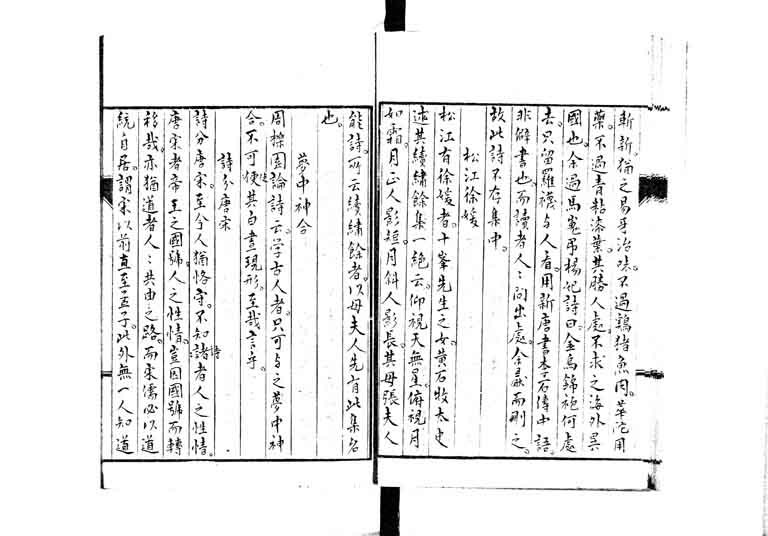 斬新。猶之易牙治味。不過鷄猪魚肉。華陀用
藥。不過青粘漆葉。其勝人處。不求之海外異
國也。余過馬嵬吊楊妃詩曰。金烏錦袍何處
去。只留羅襪与人看。用新唐書李石傳中語。
非僻書也。而讀者人〻問出處。余厭而刪之。
故此詩不存集中。
松江徐媛
松江有徐媛者。十峯先生之女。黃石牧太史
述其續繡餘集一絕云。仰視天無星。俯視月
如霜。月正人影短。月斜人影長。其母張夫人
能詩。所云續繡餘者。以母夫人先有此集名
也。
夢中神合
周櫟園論詩云。学古人者。只可与之夢中神
合。不可使其白晝現形。至哉言乎。
詩分唐宋
詩分唐宋。至今人猶恪守。不知詩者人之性情。
唐宋者帝王之國號。人之性情。豈因國號而轉
移哉。亦猶道者人〻共由之路。而宋儒必以道
統自居。謂宋以前直至孟子。此外無一人知道